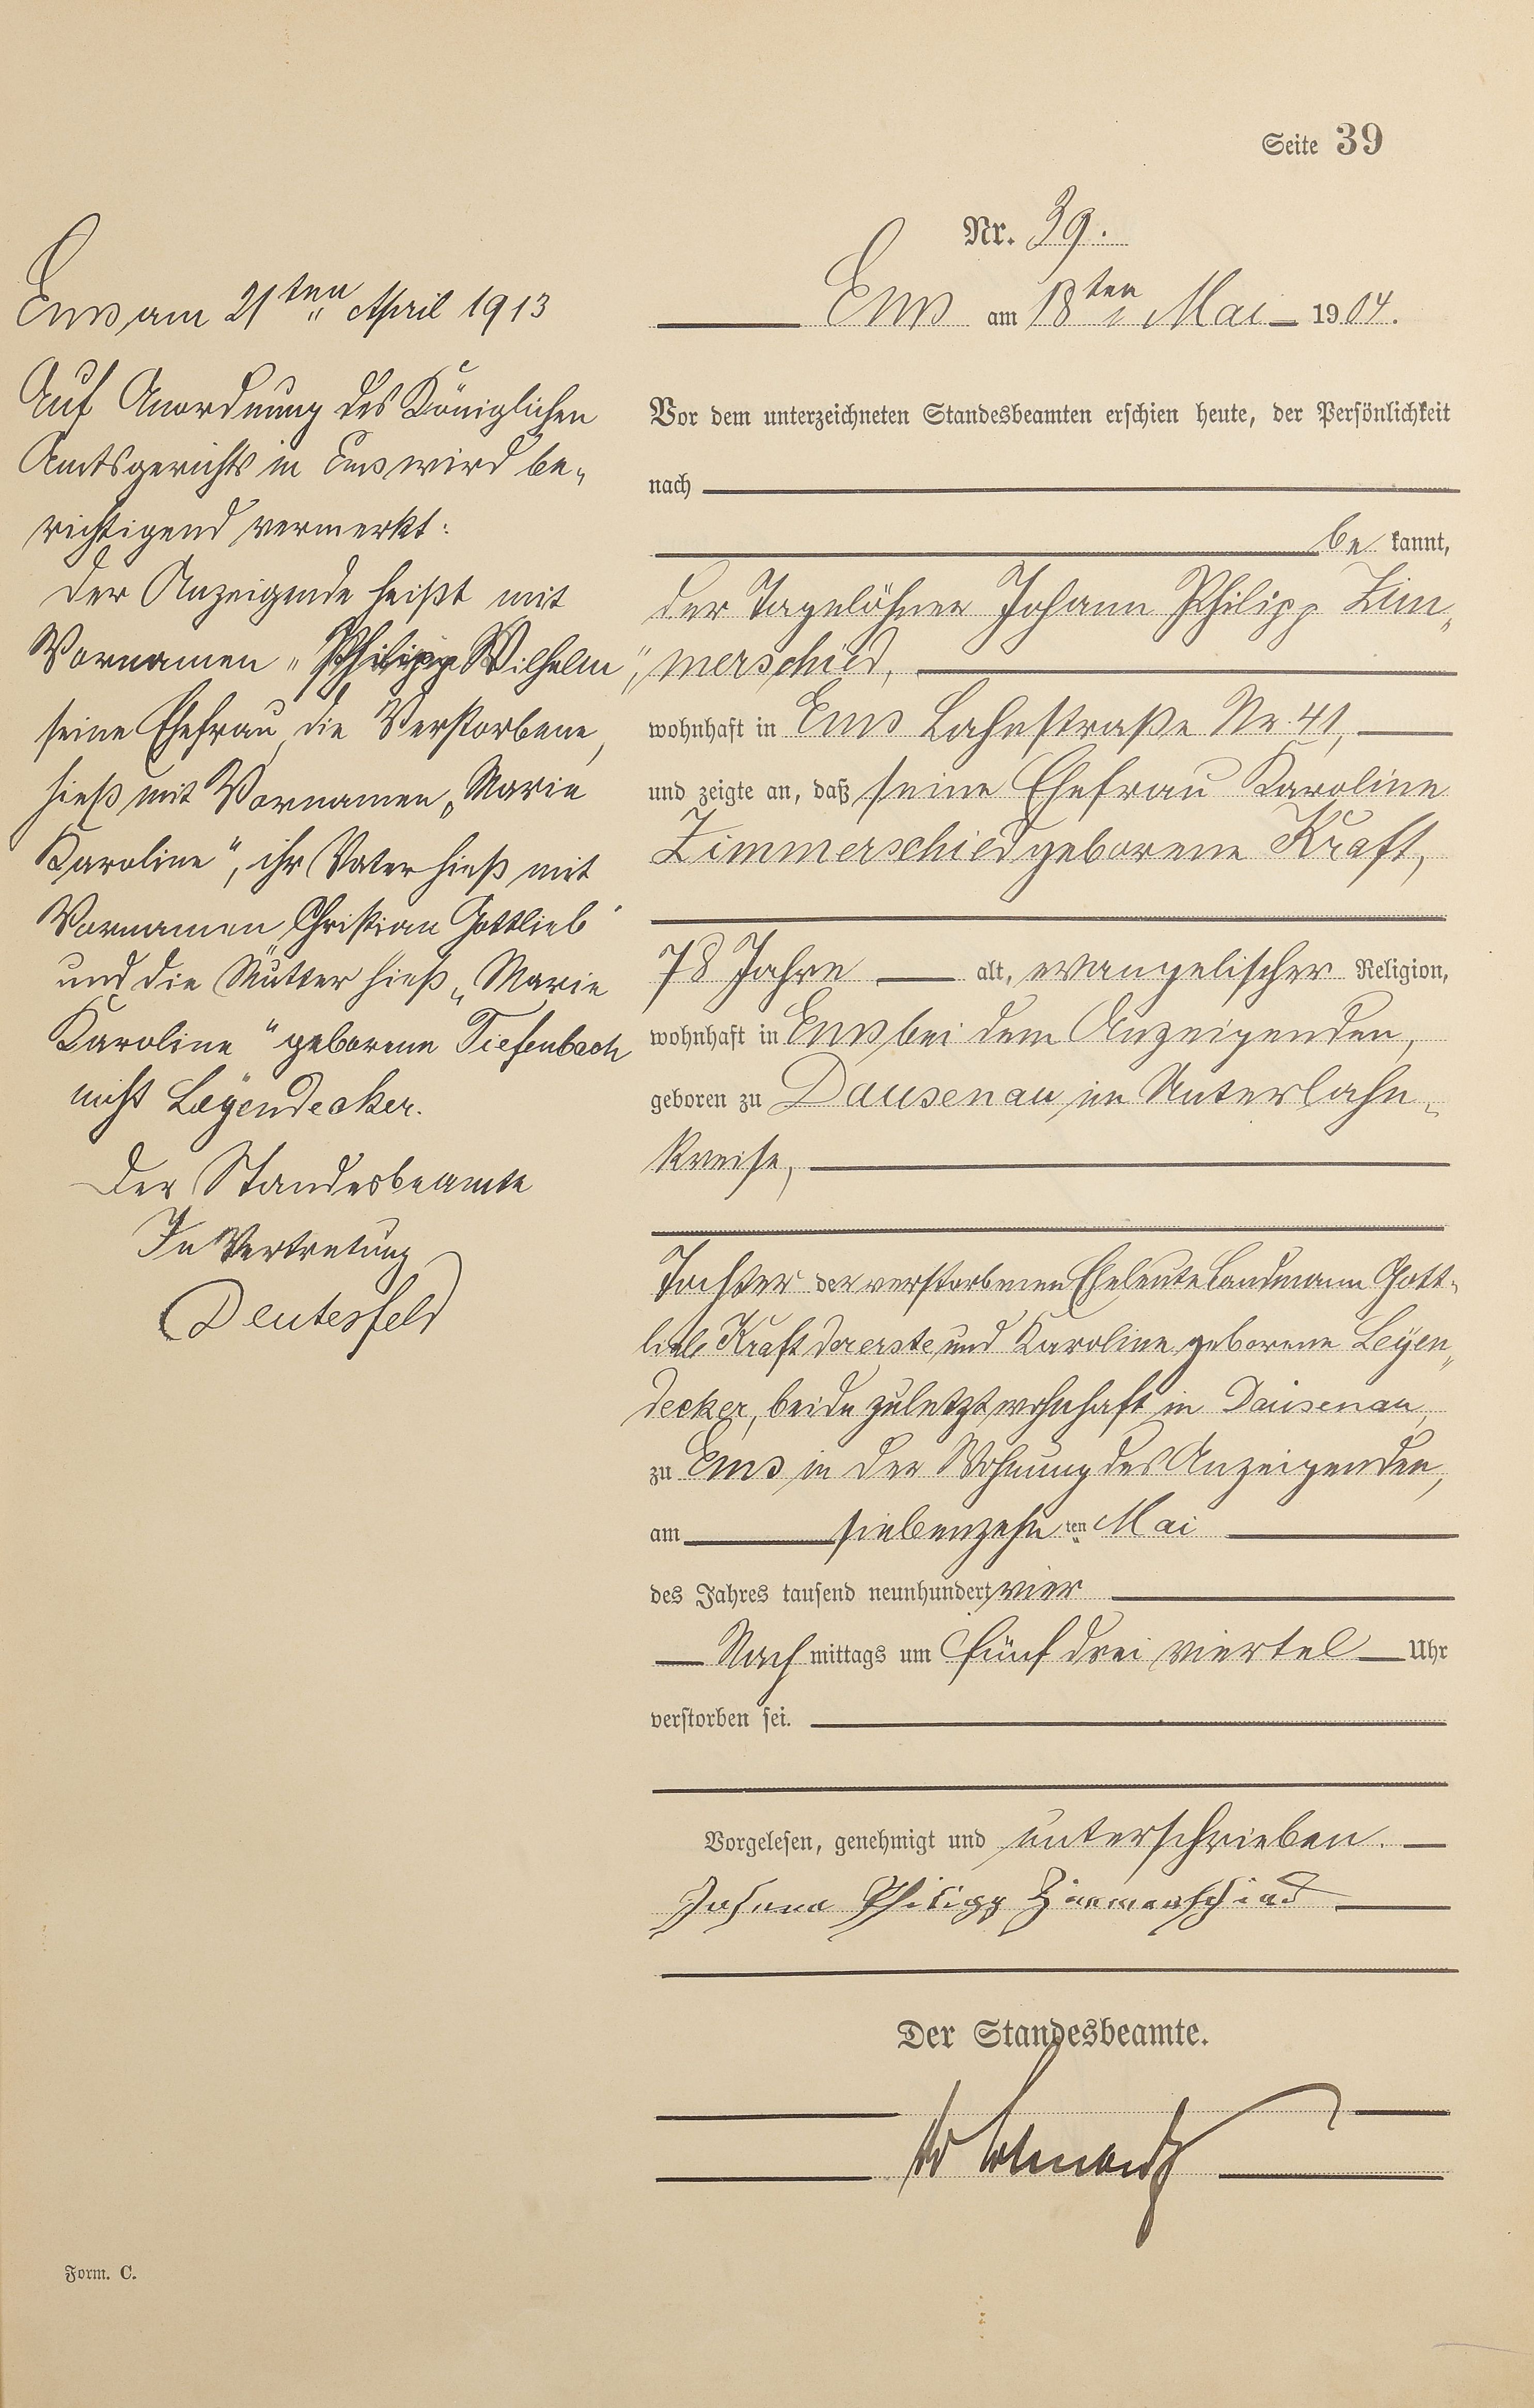 Seite 39
Nr. 39.
Ems am 18ten Mai 1904.
Vor dem unterzeichneten Standesbeamten erschien heute, der Persönlichkeit
nach
be kannt,
der Tagelöhner Johann Philipp Zim„
merschied,
wohnhaft in Ems Lahnstraße Nr. 41,
und zeigte an, daß seine Ehefrau Karoline
Zimmerschied geborene Kraft,
78 Jahre alt, evangelischer Religion,
wohnhaft in Ems bei dem Anzeigenden,
geboren zu Dausenau im Unterlahn„
kreise,
Tochter der verstorbenen Eheleute Landmann Gott„
lieb Kraft der erste und Karoline geborene Leÿen„
decker, beide zuletzt wohnhaft in Dausenau,
zu Ems in der Wohnung des Anzeigenden,
am siebenzehnten Mai
des Jahres tausend neunhundert vier
Nachmittags um fünf drei viertel Uhr
verstorben sei.
Vorgelesen, genehmigt und unterschrieben.
Johann Philipp Zimmerschied
Der Standesbeamte.
Ems am 21ten April 1913
Auf Anordnung des Königlichen
Amtsgerichts in Ems wird be„
richtigend vermerkt:
Der Anzeigende heißt mit
Vornamen „Philipp Wilhelm",
seine Ehefrau, die Verstorbene,
hieß mit Vornamen „Marie
Karoline", ihr Vater hieß mit
Vornamen „Christian Gottlieb"
und die Mutter hieß „Marie
Karoline" geborene Tiefenbach
nicht Leÿendecker.
Der Standesbeamte
In Vertretung
Deutesfeld
Form. C.